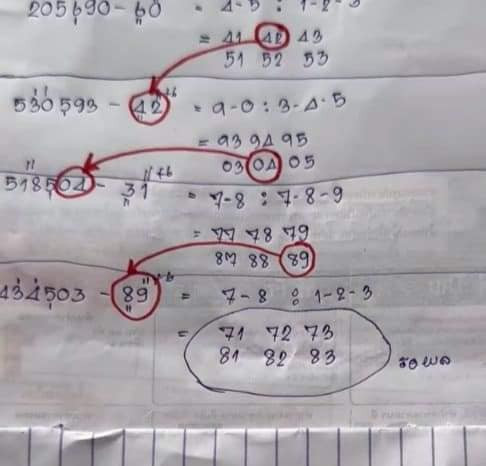 205690 - 60 = 4-5 : 1-2-3
= 41 42 43
51 52 53
530593 - 42 +6 = 9-0 : 3-4-5
= 93 94 95
03 04 05
518504 - 31 +6 = 7-8 : 7-8-9
= 77 78 79
87 88 89
434503 - 89 +6 = 7-8 : 1-2-3
= 71 72 73
81 82 83
รอผล